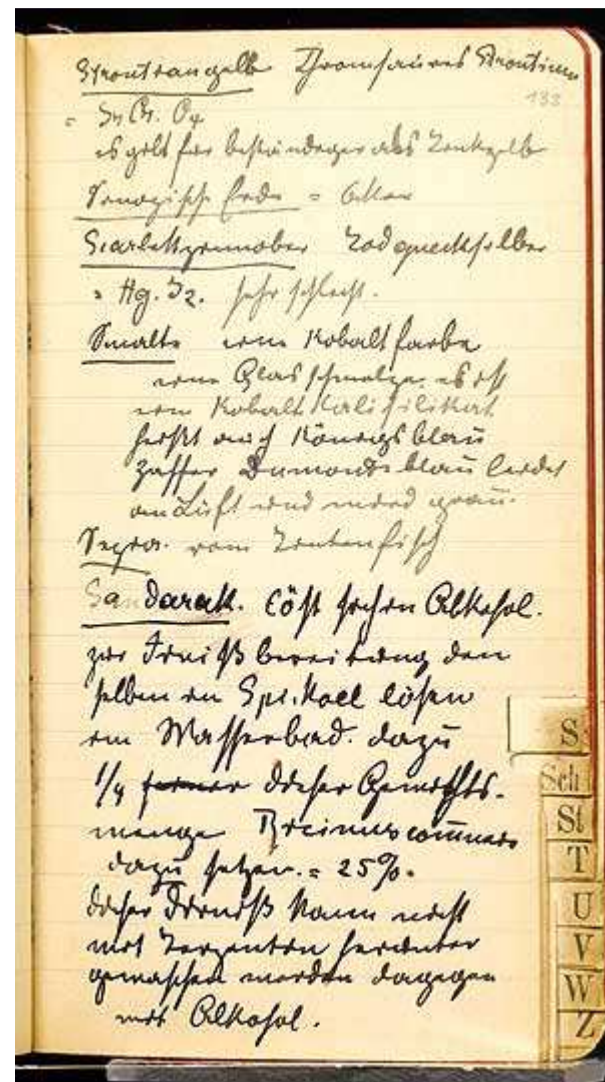 Strontiangelb Chromsaures Strontium
133
= Sr Cr. O4
es gilt für beständiger als Zinkgelb
Senegische Erde = Ocker
Scarlettzinnober Jodquecksilber
= Hg. J2. sehr schlecht.
Smalte eine Kobaltfarbe
eine Glasschmelze es ist
ein Kobalt Kalisilikat
heißt auch Königsblau
Zaffer Dumontsblau leidet
an Luft und wird grau.
Sepia. vom Tintenfisch
Sandarak. löst sich in Alkohol.
zur Firnißbereitung den
selben in Spi. lösen
im Wasserbad. dazu
1/4 dieser Gewichts-
menge
dazu setzen. = 25%.
dieser Firniß kann nicht
mit Terpentin herunter
gewaschen werden dagegen
mit Alkohol.
S
Sch
St
T
U
V
W
Z